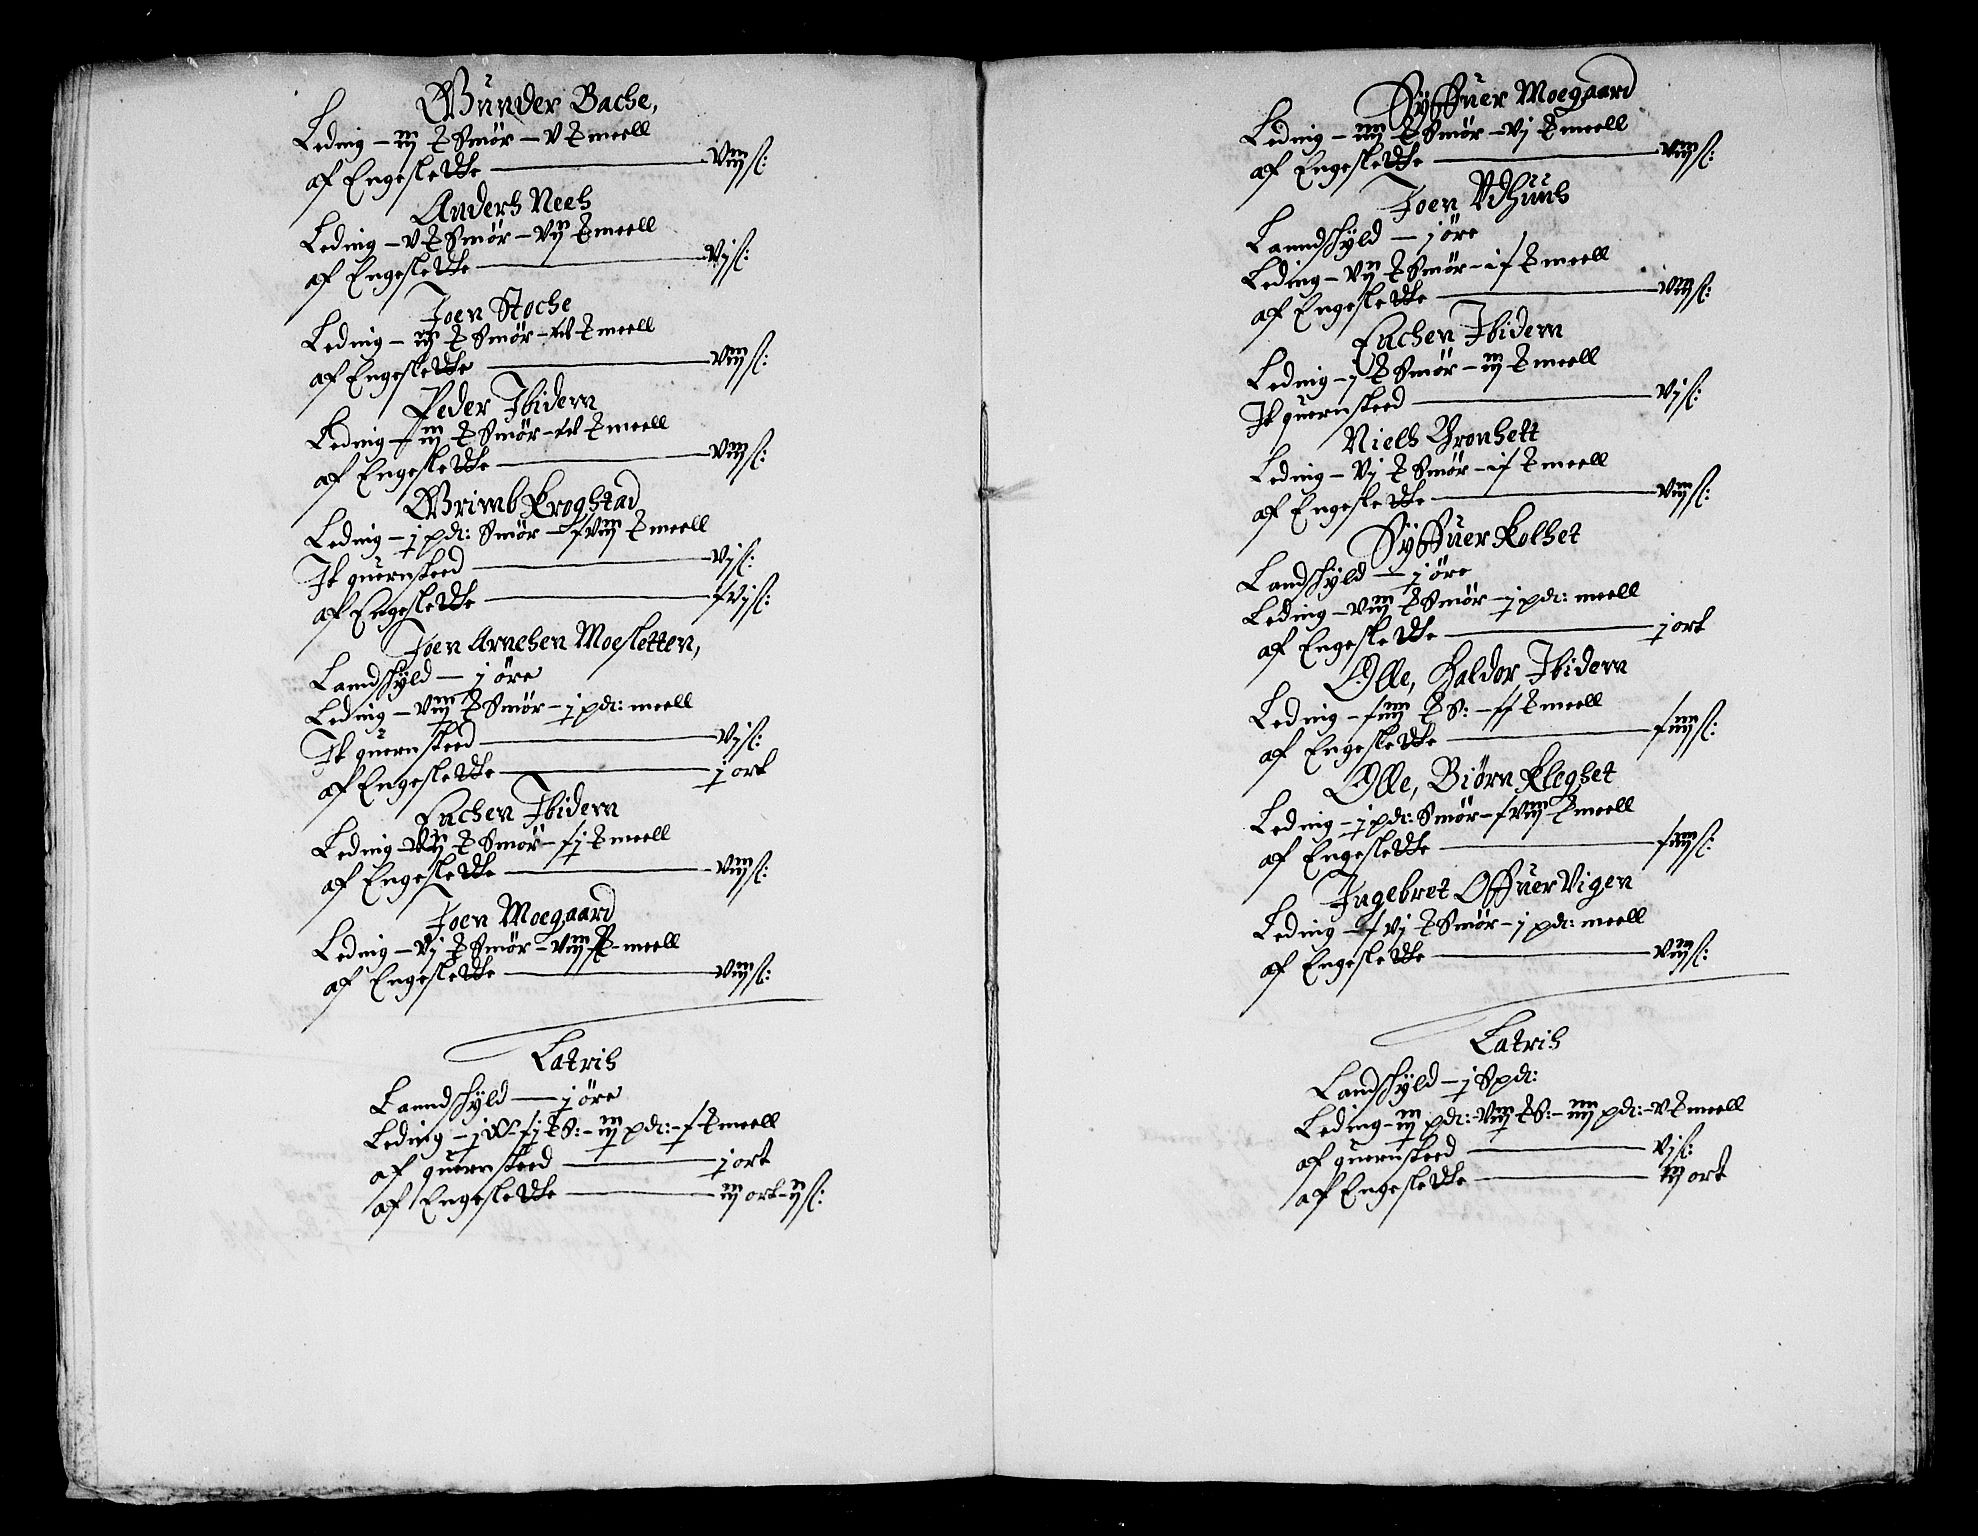 Gunder Bache,
Leding – iij ℔ Smör – v ℔ meell
af Engeslette — viij ſl:
Anders Nees
Leding – v ℔ Smör – vij ℔ meell
af Engeslette — vj ſl:
Joen Stoche
Leding – iij ℔ Smör – ℔ meell
af Engeslette — viij ſl:
Peder Ibidem
Leding – iij ℔ Smör – ℔ meell
af Engeslette — viij ſl:
Grimb Krogstad
Leding – j pd: Smör – fviij ℔ meell
It quernsteed — vj ſl:
af Engeslette — fvj ſl:
Joen Arnesen Moesletten,
Landschyld — j öre
Leding – viij ℔ Smör – j pd: meell
It quernsteed — vj ſl:
af Engeslette — j ort
Lachen Ibidem
Leding – vij ℔ Smör – fj ℔ meell
af Engeslette — viij ſl:
Joen Moegaard
Leding – vj ℔ Smör – viij ℔ – meell
af Engeslette — viij ſl:
Latris
Lanndschyld — j öre
Leding – j W – fj ℔ S: – iij pd: – f ℔ meell
af quernsteed — j ort
af Engeslette — iij ort – ij ſl:
Syffuer Moegaard
Leding – iiij ℔ Smör – vj ℔ meell
af Engeslette — viij ſl:
Joen Vdhuus
Lanndschyld — j öre
Leding – vij ℔ Smör – if ℔ meell
af Engeslette — viij ſl:
Lachen Ibidem
Leding – j ℔ Smör – iij ℔ meell
It quernsteed — vj ſl:
Niels Gronsett
Leding – vj ℔ Smör – if ℔ meell
af Engeslette — viij ſl:
Syffuer Kolset
Landschyld — j öre
Leding – viij ℔ Smör – j pd: meell
af Engeslette — j ort
Olle, Haldor Ibidem
Leding – fiiij ℔ S: – ff ℔ meell
af Engeslette — fiiij ſl:
Olle, Biörn Klegset
Leding – j pd: Smör – fviij ℔ meell
af Engeslette — fiiij ſl:
Ingebret Offuer Vigen
Leding – fvj ℔ Smör – j pd: meell
af Engeslette — viij ſl:
Latris
Landschyld – j Spd:
Leding – iij pd: – viij ℔ S: – iiij pd: – v ℔ meell
af quernsteed — vj ſl:
af Engeslette — iij ort